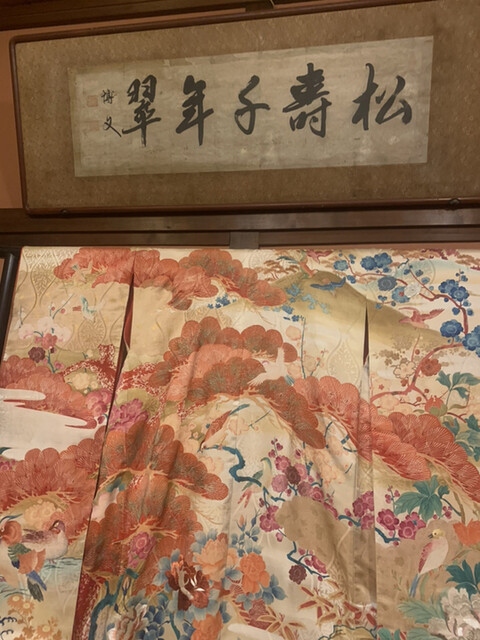 松壽千年翠
博文